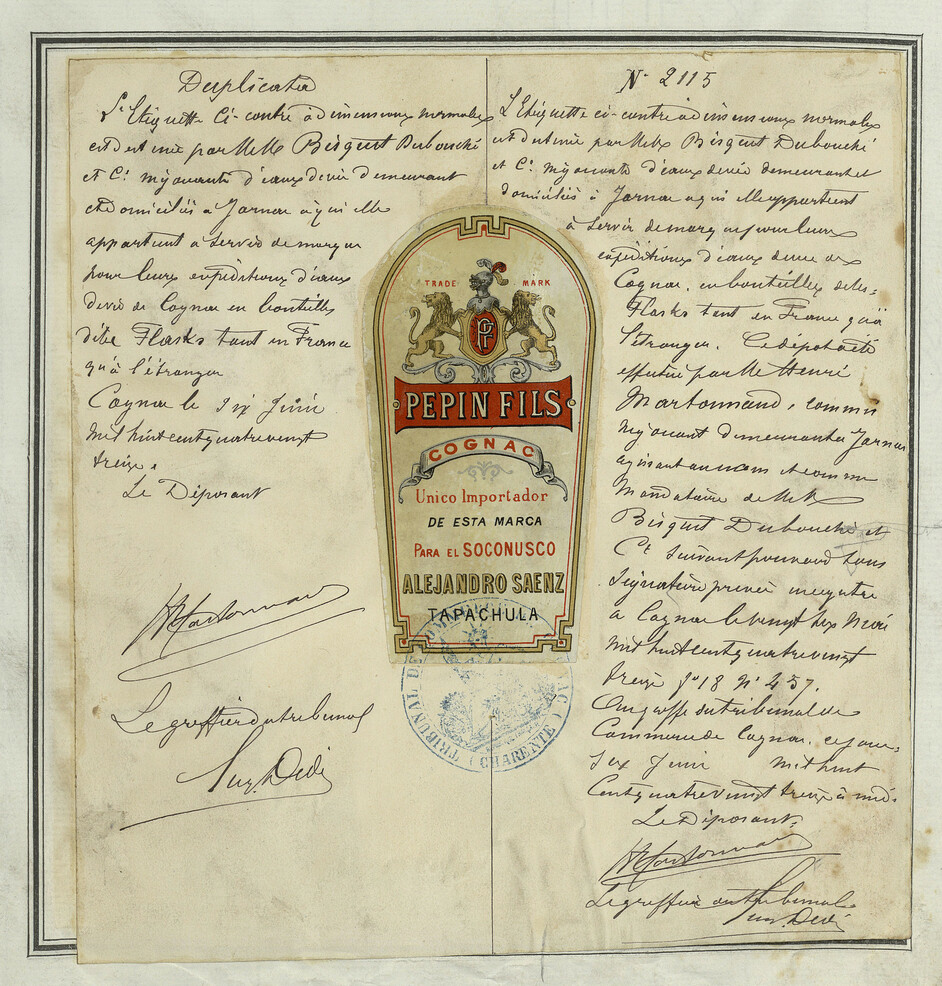 Duplicata
L'Etiquette ci-contre à dimensions normales
est destinée par MM. Bisquit Dubouché
et Cie négociants d'eaux de vie demeurant
et domiciliés à Jarnac à qui elle
appartient à servir de marque
pour leurs expéditions d'eaux
de vie de Cognac en bouteilles
dites Flasks tant en France
qu'à l'étranger
Cognac le six Juin
mil huit cent quatre vingt
treize.
Le Déposant
Le greffier du tribunal
N° 2115
L'Etiquette ci-contre à dimensions normales
est destinée par MM. Bisquit Dubouché
et Cie négociants d'eaux de vie demeurant et
domiciliés à Jarnac à qui elle appartient
à servir de marque pour leurs
expéditions d'eaux de vie de
Cognac, en bouteilles dites
Flasks tant en France qu'à
l'étranger. Ce dépôt a été
effectué par Mr Henri
Martonnaud, commis
négociant demeurant à Jarnac
agissant au nom et comme
mandataire de MM.
Bisquit Dubouché et
Cie suivant pouvoir sous
signature privée enregistré
à Cognac le vingt six Mai
mil huit cent quatre vingt
treize fo 18 No 457.
Au greffe du tribunal de
Commerce de Cognac, ce jour
six Juin mil huit
cent quatre vingt treize à midi.
Le Déposant.
Le greffier du tribunal
TRADE MARK
PF
PEPIN FILS
COGNAC
Unico Importador
DE ESTA MARCA
PARA EL SOCONUSCO
ALEJANDRO SAENZ
TAPACHULA
TRIBUNAL DE COMMERCE
(CHARENTE)